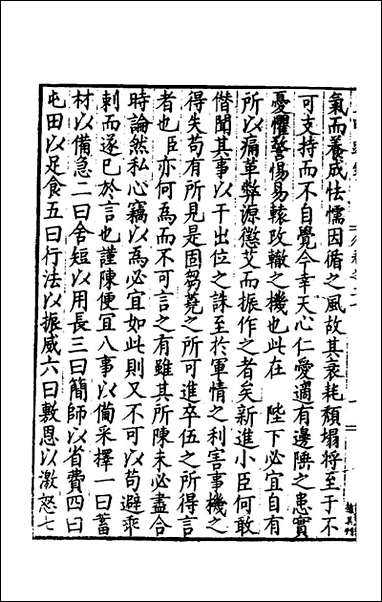 氣而養成怯懦因循之風故其衰耗頹塌將至于不
可支持而不自覺今幸天心仁愛適有邊陲之患實
憂懼警惕易轅改轍之機也此在 陛下必宜自有
所以痛革弊源懲艾而振作之者矣新進小臣何敢
僣聞其事以干出位之誅至於軍情之利害事機之
得失苟有所見是固芻蕘之所可進卒伍之所得言
者也臣亦何為而不可言之有雖其所陳未必盡合
時論然私心竊以為必宜如此則又不可以苟避乖
剌而遂已於言也謹陳便宜八事以備采擇一曰蓄
材以備急二曰舍短以用長三曰簡師以省費四曰
屯田以足食五曰行法以振威六曰敷恩以激怒七